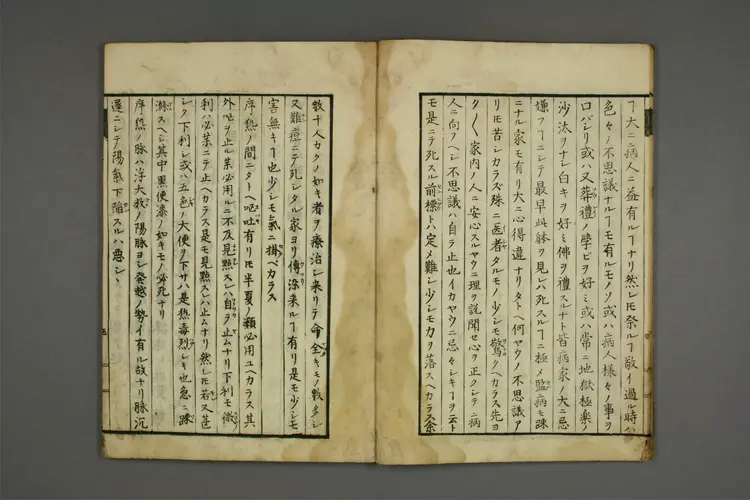 ヿ大ニ病人ニ益有ルヿナリ然レモ祭ルヿ敬イ過ル時ハ
色々ノ不思議ナルヿモ有ルモノソ或ハ病人様々ノ事ヲ
口バシリ或ハ又葬禮ノ學ビヲ好ミ或ハ常ニ地獄極楽ノ
沙汰ヲナシ白キヲ好ミ佛ヲ禮スルナト皆病家ノ大ニ忌
嫌フヿニシテ最早此躰ヲ見レバ死スルヿニ極メ監病モ踈
ニナル家モ有リ大ニ心得違ナリタトヘ何ヤウノ不思議ア
リモ苦シカラズ殊ニ医者タルモノ少シモ驚クヘカラス先ヨ
ク〳〵家内ノ人ニ安心スルヤウニ理ヲ説聞セ心ヲ正クシテ病
人ニ向フヘシ不思議ハ自ラ止也イカヤウニ忌々シキヿヲ云ト
モ是ニテ死スル前標トハ定メ難シ少シモ力ヲ落スヘカラス余
数十人カクノ如キ者ヲ療治シ来リテ命全キモノ数多シ
又難痘ニテ死シタル家ヨリ傳染来ルヿ有リ是モ少シモ
害無キヿ也少シモ氣ニ掛ベカラス
序熱ノ間ニタトヘ吐有リモ半夏ノ類必用ユヘカラス其
外吐ヲ止ル薬必用ルニ不及見點スレハ自ラ止ムナリ下利モ微
利ハ必薬ニテ止ヘカラス是モ見點スレハ止ムナリ然レモ若又甚
シク下利シ或ハ五色ノ大便ヲ下サハ是熱毒烈シキ也急ニ踈
滌スヘシ其中黒便漆ノ如キモノ必死ナリ
序熱ノ脉ハ浮大数ノ陽脉ヨシ発越ノ勢イ有ル故ナリ脉沉
遅ニシテ陽氣下陷スルハ悪シ